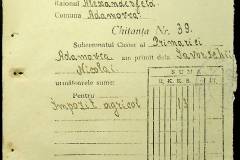 Raional Alexanderfeld
Comuna Adamovca
Chitanța Nr. 39.
Subsemnatul Casier al Primăriei
Adamovca am primit dela
Nicolai
SUMA
următoarele sume:
R.K.K.S.
Pentru
Impozit agricol